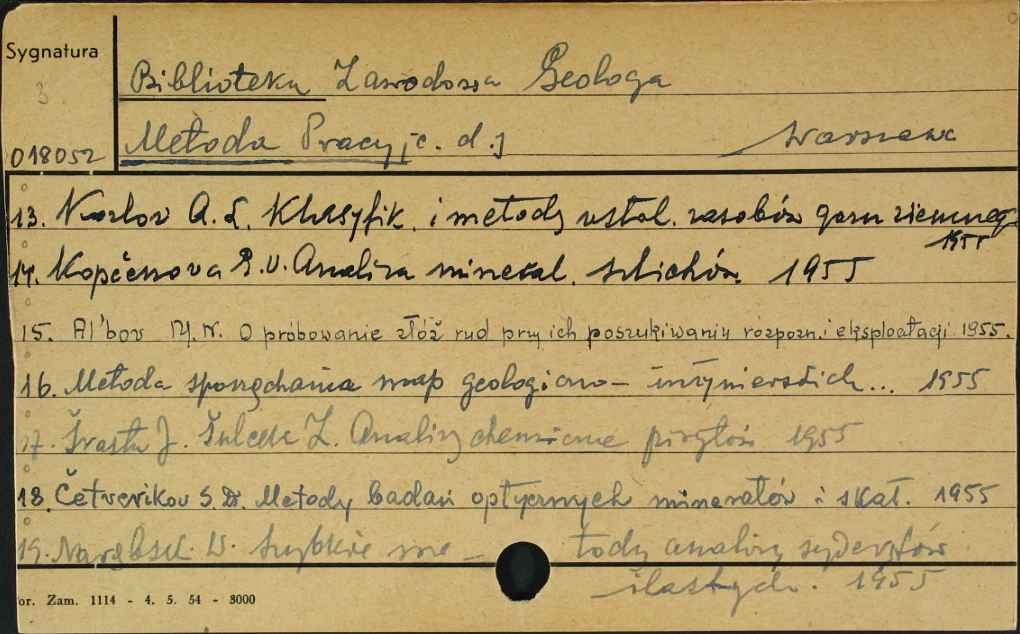 Sygnatura
3
Biblioteka Zawodowa Geologa
018052 Metoda Pracy [c. d.] Warszawa
13. Kozlov A. S. Klasyfik. i metody ustal. zasobów gazu ziemneg.
1955
14. Kopčenova E. V. Analiza mineral. szlichów. 1955
15. Al'bov M. N. Opróbowanie złóż rud przy ich poszukiwaniu rozpozn. i eksploatacji 1955.
16. Metoda sporządzania map geologiczno-inżynierskich... 1955
17. Šrastu J. Šulcek Z. Analizy chemiczne pirytów 1955
18. Četverikov S. D. Metody badań optycznych minerałów i skał. 1955
19. Narębski W. Szybkie me-tody analizy syderytów
ilastych. 1955
or. Zam. 1114 - 4. 5. 54 - 3000